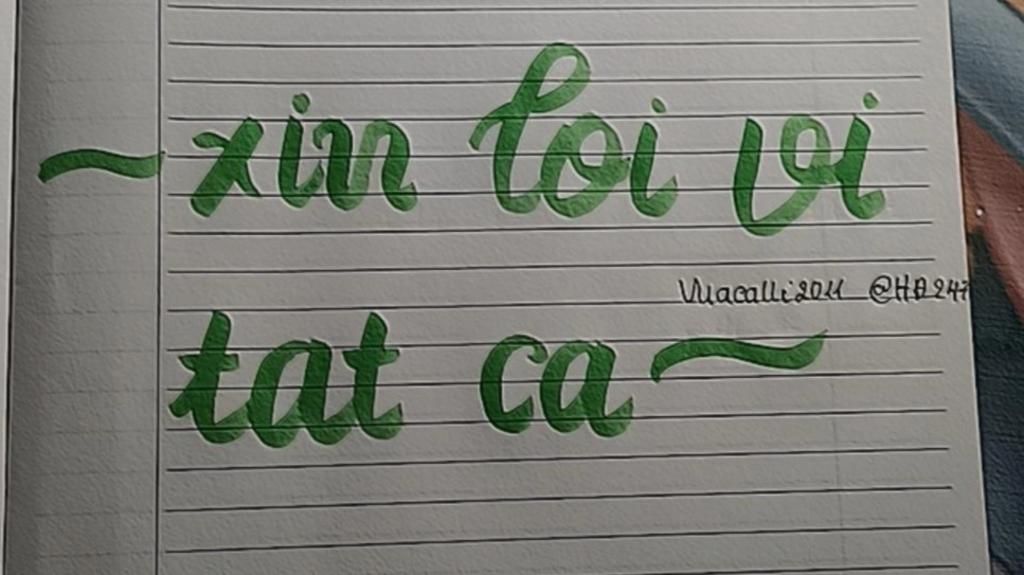 ~xin loi vi
Vuacalli2011 @HD247
tat ca~